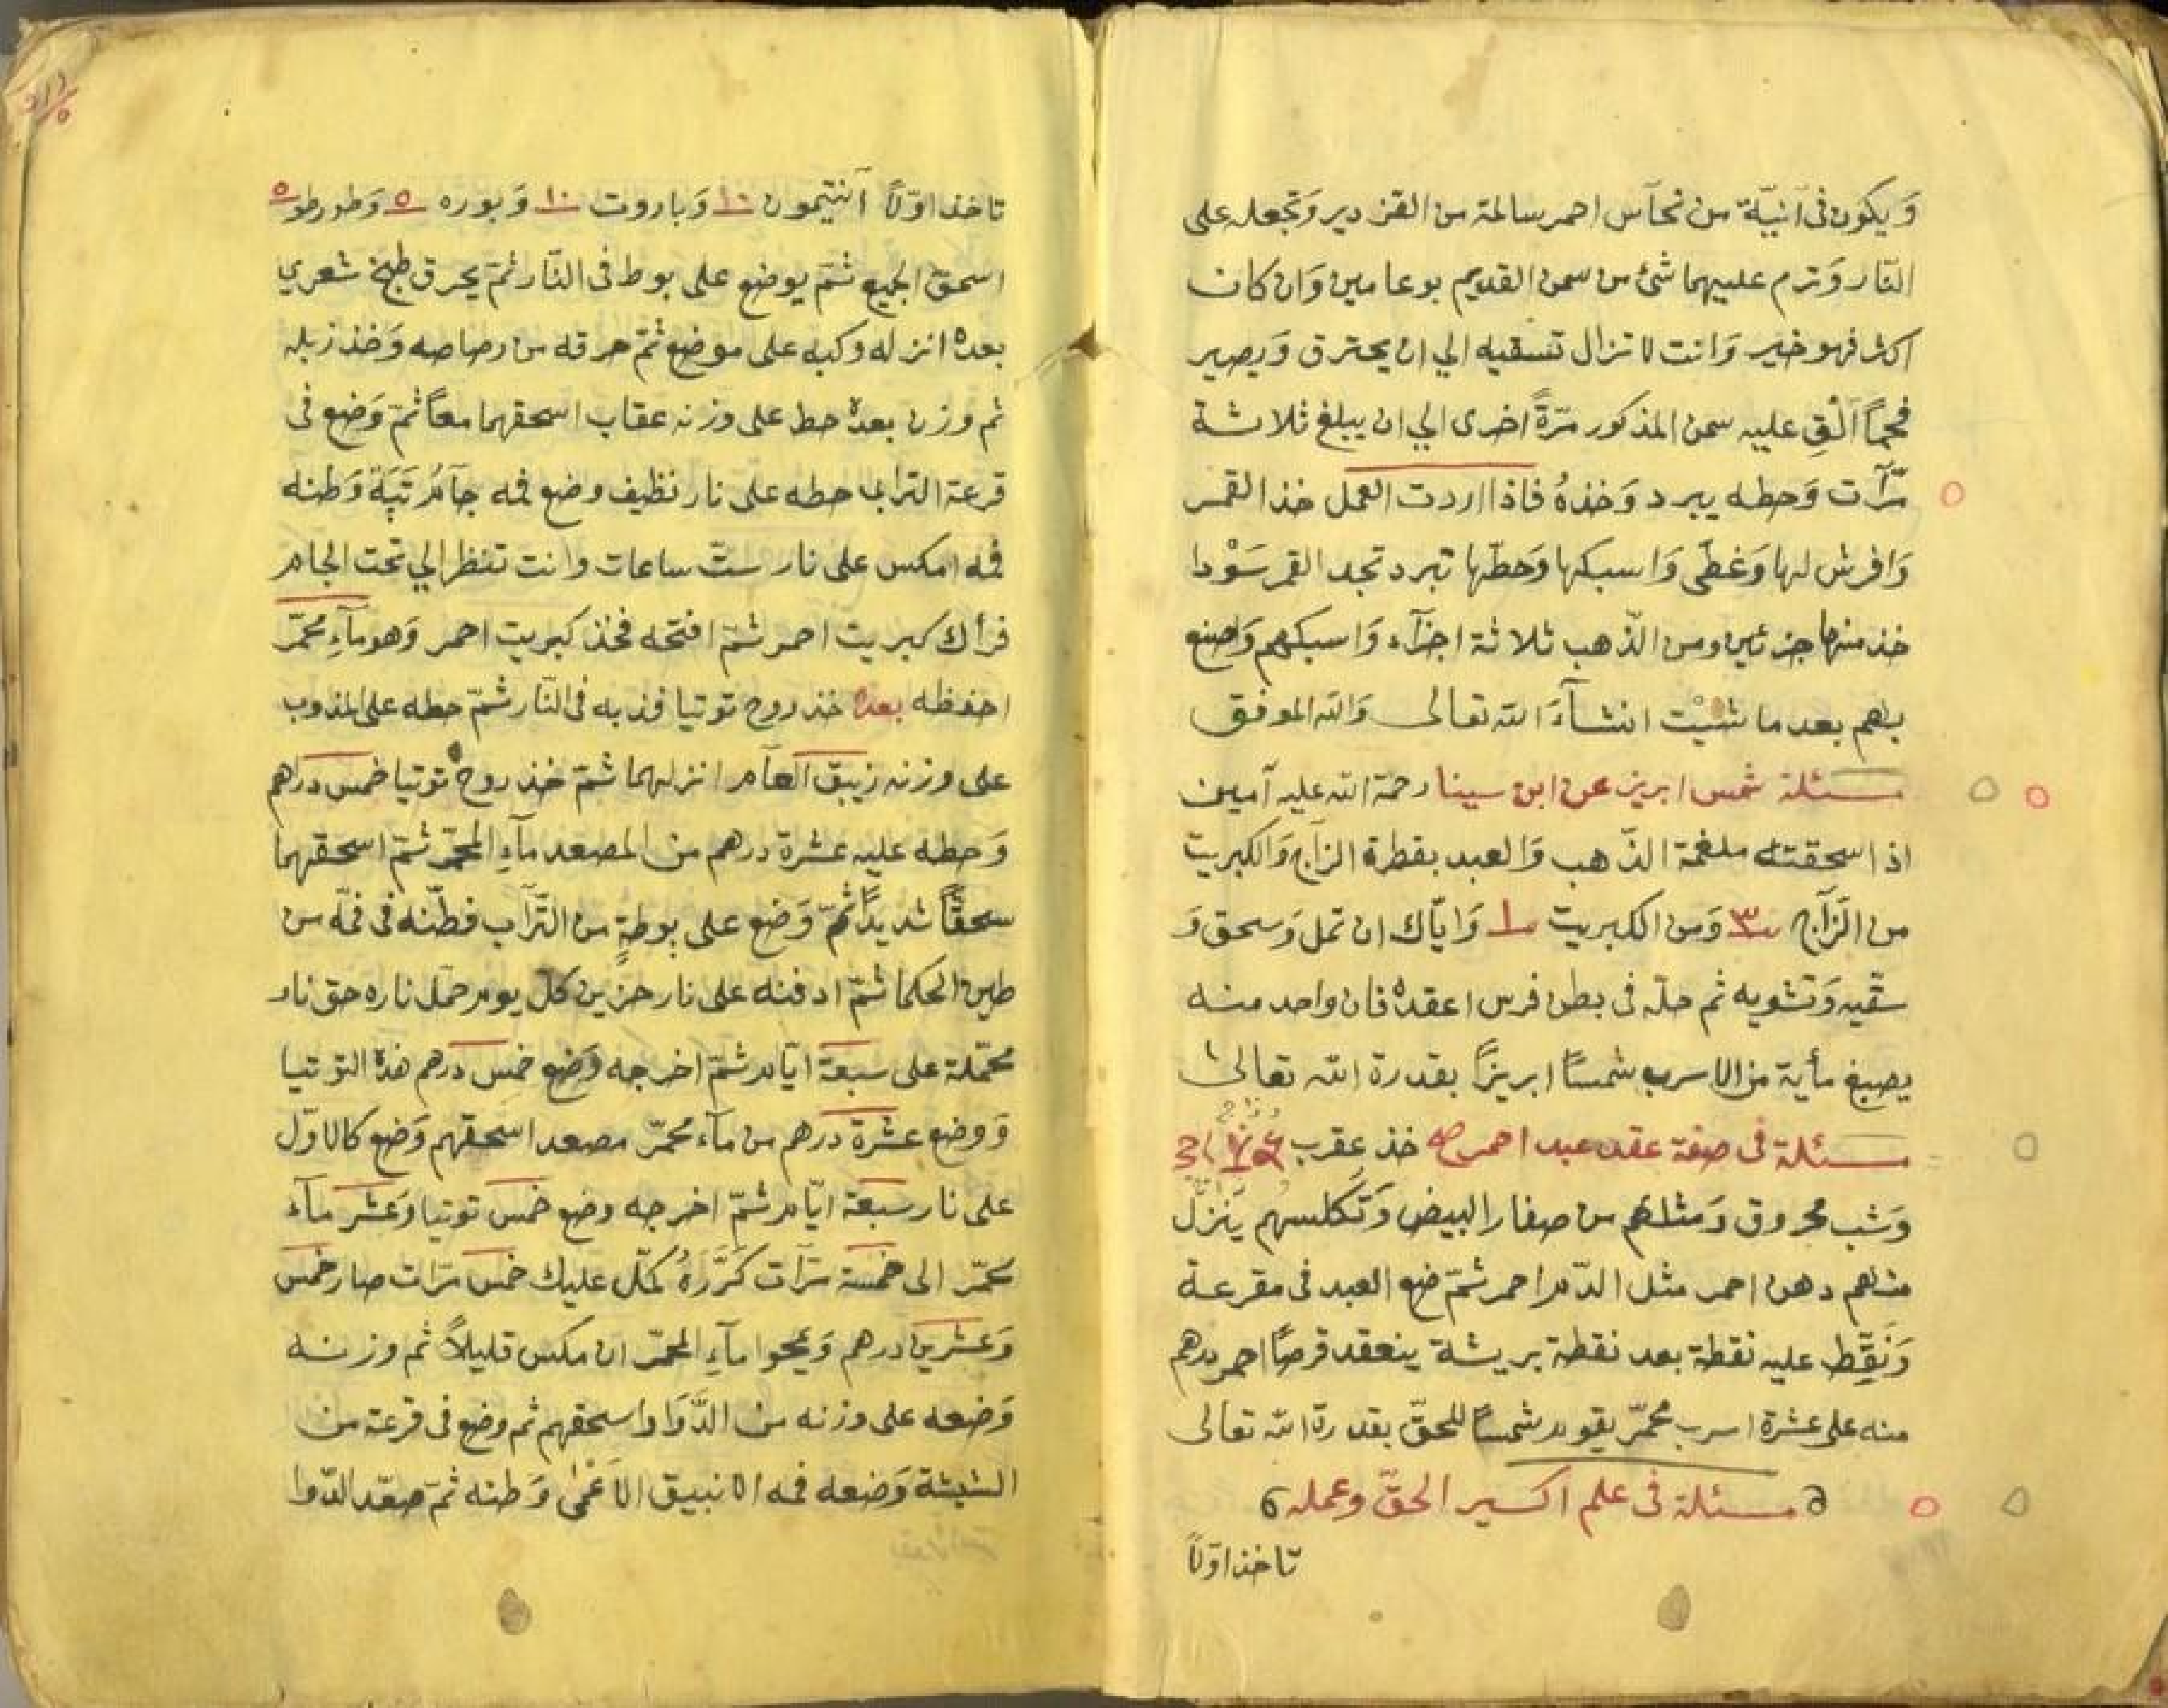 وَيكون فى آنيّة من نحآس احمر سالمة من القزدير وَتجعله على
النّار وَترم عليهما شئ من سمن القديم بوعامين وَان كان
اكثر فهو خير وَانت لا تزال تسقيه الي ان يحترق وَيصير
فحماً اَلْقِ عليه سمن المذكور مرّةً اخرى الي ان يبلغ ثلاثة
مرّآت وَحطه يبرد وَخذهُ فاذا اردت العمل خذ القمر
وَافرش لها وَغطّى وَاسبكها وَحطّها تبرد تجد القمر سَوْدا
خذ منها جزئين ومن الذّهب ثلاثة اجزآء وَاسبكهم وَاصنع
بهم بعد ما شيْت انشآءَ الله تعالى وَالله الموفق
مسئلة شمس ابريز عن ابن سينا رحمة الله عليه آميين
اذا اسحقته ملغمة الذّهب وَالعبد بقطرة الزاج وَالكبريت
من الزَآج ٣ وَمن الكبريت ١ وَايّاك ان تمل وَسحق وَ
سقيه وَتشويه ثم حلّه فى بطن فرس اعقدهُ فان واحد منه
يصبغ مأية من الاسرب شمساً ابريزاً بقدرة الله تعالى
مسئلة فى صفة عقد عبد احمر خذ عقرب
وَشب محروق وَمثلهم من صفار البيض وَتَكلسهم يَنزل
منهم دهن احمر مثل الدّم احمر ثمّ ضع العبد فى مقرعة
وَنَقِّط عليه نقطة بعد نقطة بريشة ينعقد قرصاً احمر درهم
منه على عشرة اسرب محمّر يقوم شمساً للمحقّ بقدرة الله تعالى
مسئلة فى علم اكسير الحقّ وعمله
تاخذ اوّلاً
تاخذ اوّلاً آنتيمون ١٠ وَباروت ١٠ وَبوره ٥ وَطورطو ٥
اسحق الجميع ثمّ يوضع على بوط فى النّار ثمّ يحرق طبخ شعري
بعدهُ انزله وكبه على موضع ثمّ حرقه من رصاصه وَخذ زبله
ثم وزن بعدهُ حط على وزنه عقاب اسحقهما معاً ثمّ وَضع فى
قرعة التراب حطه على نار نظيف وضع فمه جآم رَتَبَة وَطنه
فمه امكس على نار ستّ ساعات وانت تنظر الي تحت الجام
فرأك كبريت احمر ثمّ افتحه فخذ كبريت احمر وَهو مآءِ محمّر
احفظه بعدهُ خذ روح توتيا فذبه فى النّار ثمّ حطه على المذوب
على وزنه زيبق العآم انزلهما ثمّ خذ روح توتيا خمس دراهم
وَحطه عليه عشرة درهم من المصعد مآءِ المحمّر ثمّ اسحقهما
سحقًا شديداً ثمّ وَضع على بوطةٍ من التّرآب فطّنه فى فمّه من
طين الحكما ثمّ ادفنه على نار حزين كلّ يوم حمّل ناره حق نار
محمّلة على سبعة ايّام ثمّ اخرجه وَضع خمس درهم هذهُ التوتيا
وَوضع عشرة درهم من مآء محمّر مصعد اسحقهم وَضع كالاوّل
على نار سبعة ايّام ثمّ اخرجه وضع خمس توتيا وَعشر مآء
محمّر الى خمسة مرّآت كَرَّرَهُ كمّل عليك خمس مرّات صار خمس
وَعشرين درهم وَيمحوا مآءِ المحمّر ان مكس قليلاً ثم وزنه
وَضعه على وزنه من الدَّوَا واسحقهم ثم وضع فى قرعة من
الشيشة وَضعه فمه الانبيق الاَعْمٰى وَطنه ثمّ صعّد الدّوا